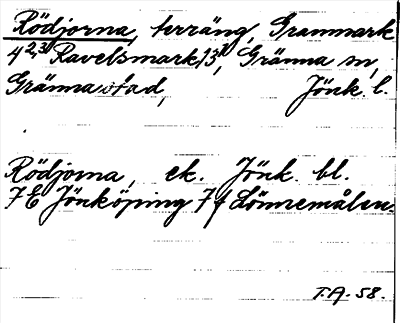 Rödjorna, terräng, Granmark
4 2,3 Ravelsmark 13 11, Gränna sn,
Gränna stad, Jönk. l.
Rödjorna, ek. Jönk. bl.
7E Jönköping 7f Lönnemålen.
T.A. 58.